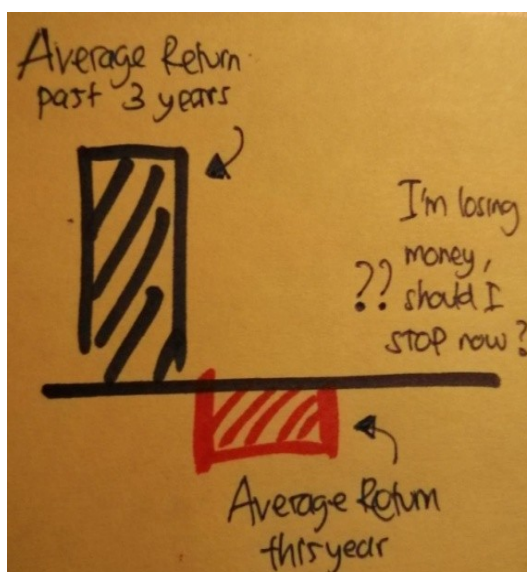 Average Return
past 3 years
I'm losing
money,
?? should I
STOP now?
Average Return
this year